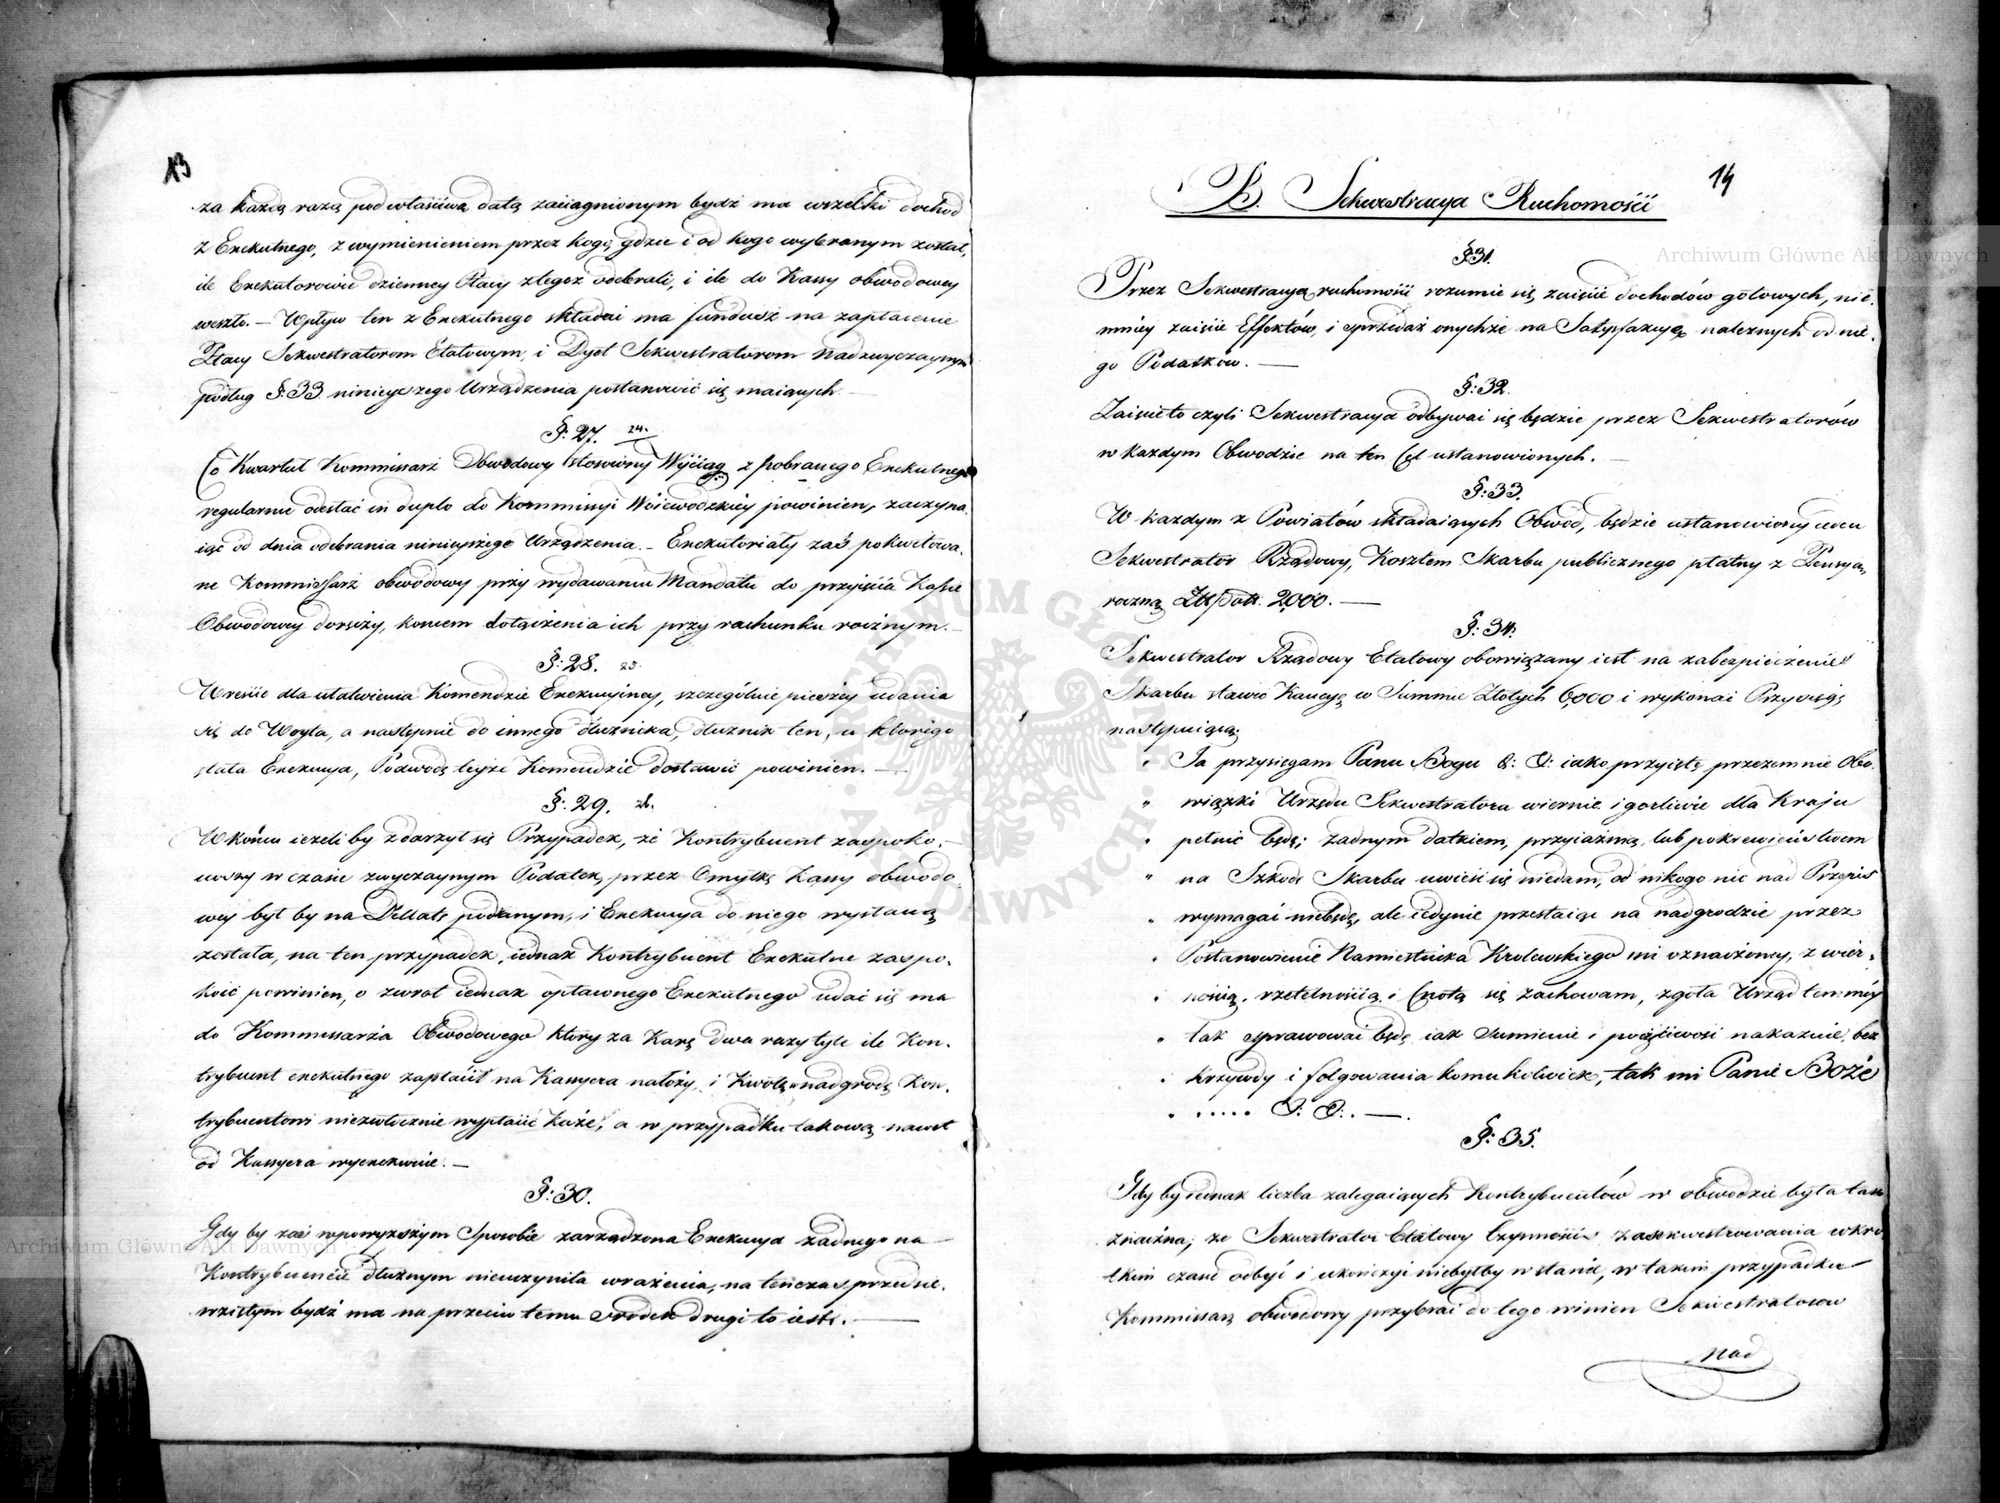 13
za każdą razą pod właściwą datą zaciągnionym bydź ma wszelki dochod
z Exekutnego, z wymienieniem przez kogo, gdzie i od kogo wybranym został,
ile Exekutorowie dzienney Płacy z tegoż odebrali, i ile do Kassy obwodowey
weszło. — Wpływ ten z Exekutnego składać ma fundusz na zapłacenie
Płacy Sekwestratorom Etatowym, i Dyet Sekwestratorom nadzwyczaynym
podług §: 33 ninieyszego Urządzenia postanowić się maiących. —
§: 27. 24.
Co Kwartał Kommissarz Obwodowy stosowny Wyciąg z pobranego Exekutnego
regularnie odesłać in duplo do Kommissyi Woiewodzkiey powinien, zaczyna-
iąc od dnia odebrania ninieyszego Urządzenia. — Exekutoriały zaś pokwitowa-
ne Kommissarz obwodowy przy wydawaniu Mandatu do przyięcia Kassie
Obwodowey doręczy, koncem dołączenia ich przy rachunku rocznym. —
§: 28. 25.
Wreście dla ułatwienia Komendzie Exekucyiney, szczególnie pieszey udania
się do Woyta, a następnie do innego dłużnika, dłużnik ten, u ktorego
stała Exekucya, Podwodę teyże Komendzie dostawić powinien. —
§: 29. 26.
W końcu ieżeli by zdarzył się Przypadek, że Kontrybuent zaspoko-
iwszy w czasie zwyczaynym Podatek, przez Omyłkę Kassy obwodo-
wey był by na Dellatę podanym, i Exekucya do niego wysłaną
została, na ten przypadek, iednak Kontrybuent Exekutne zaspo-
koić powinien, o zwrot iednak opłaconego Exekutnego udać się ma
do Kommissarza Obwodowego ktory za Karę dwa razy tyle ile Kon-
trybuent exekutnego zapłacił na Kassyera nałoży, i Kwotę w nadgrodę Kon-
trybuentowi niezwłocznie wypłacić każe, a w przypadku takową nawet
od Kassyera wyexekwuie. —
§: 30.
Gdy by zaś wpowyższym Sposobie zarządzona Exekucya żadnego na
Kontrybuencie dłużnym nieuczyniła wrażenia, na tenczas przedsię-
wziętym bydź ma na przeciw temu srodek drugi to iest. —
14
B. Sekwestracya Ruchomości
§31.
Przez Sekwestracyą ruchomości rozumie się zaięcie dochodów gotowych, nie-
mniey zaięcie Effektów, i sprzedaż onychże na Satysfakcyą należnych od nie-
go Podatków. —
§: 32.
Zaięcie to czyli Sekwestracya odbywać się będzie przez Sekwestratorów
w każdym Obwodzie na ten Cel ustanowionych. —
§: 33.
W każdym z Powiatów składaiących Obwód, będzie ustanowiony ieden
Sekwestrator Rządowy, Kosztem Skarbu publicznego płatny z Pensyą
roczną Złł Pols. 2,000. —
§: 34.
Sekwestrator Rządowy Etatowy obowiązany iest na zabezpieczenie
Skarbu stawić Kaucyą w Summie Złotych 6,000 i wykonać Przysięgę
następuiącą:
" Ja przysięgam Panu Bogu &: &: iako przyięte przezemnie Obo-
" wiązki Urzędu Sekwestratora wiernie i gorliwie dla Kraju
" pełnić będę; żadnym datkiem, przyiaźnią, lub pokrewieństwem
" na Szkodę Skarbu uwieść się niedam, od nikogo nic nad Przepis
" wymagać niebędę, ale iedynie przestaiąc na nadgrodzie przez
" Postanowienie Namiestnika Krolewskiego mi oznaczoney, z wier-
" nością, rzetelnością, i Cnotą się zachowam, zgoła Urząd ten móy
" tak sprawować będę iak Sumienie i poczciwość nakazuie, bez
" krzywdy i folgowania komukolwiek, tak mi Panie Boże
" ..... &: &:. —
§: 35.
Gdy by iednak liczba zalegaiących Kontrybuentów w obwodzie była tak
znaczna, że Sekwestrator Etatowy Czynności zasekwestrowania w kró-
tkim czasie odbyć i ukończyć niebyłby w stanie, w takim przypadku
Kommissarz obwodowy przybrać do tego winien Sekwestratorow
nad
Archiwum Główne Akt Dawnych
Archiwum Główne Akt Dawnych
ARCHIWUM GŁÓWNE AKT DAWNYCH